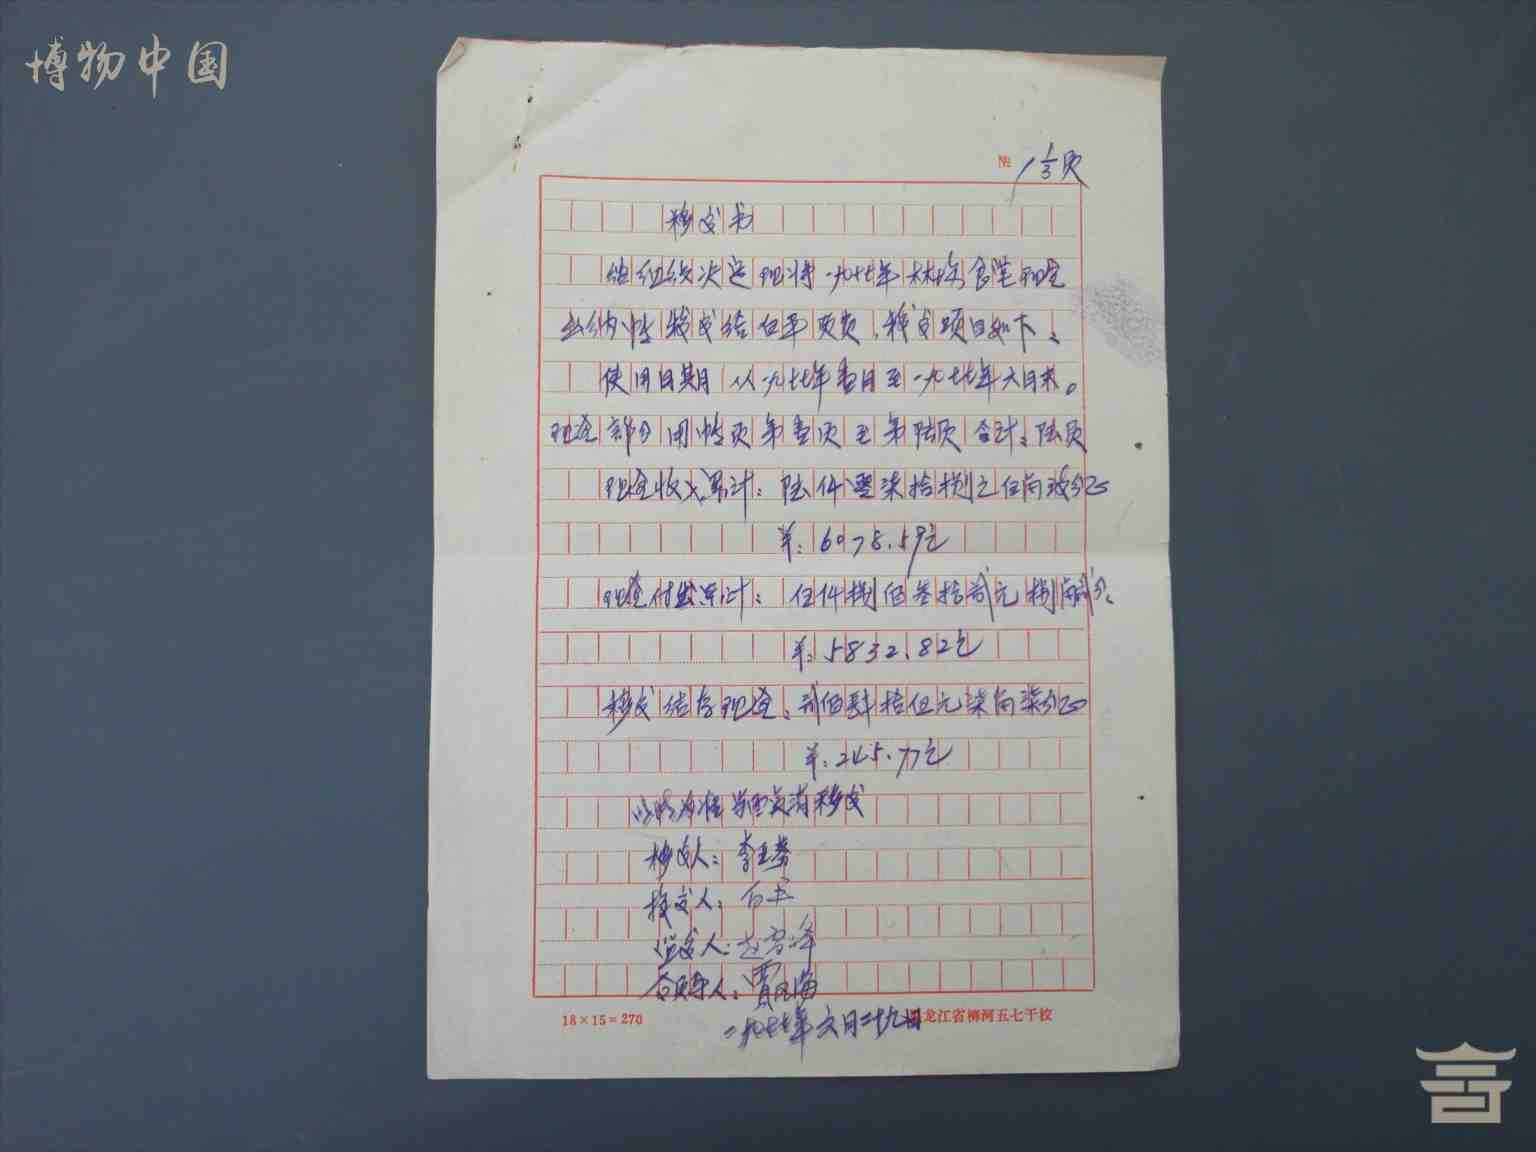 博物中国
№ 1/3页
移交书
经组织决定现将一九七七年林场食堂现金
出纳帐移交给白平负责,移交项目如下:
使用日期从一九七七年壹月至一九七七年六月末。
现金部分用帐页第壹页至第陆页合计:陆页
现金收入累计:陆仟零柒拾捌元伍角玖分
￥:6078.59元
现金付出累计:伍仟捌佰叁拾贰元捌角贰分
￥:5832.82元
移交结存现金:贰佰肆拾伍元柒角柒分
￥:245.77元
移交
移交人:李玉琴
接交人:白平
监交人:赵雪峰
负责人:贾
一九七七年六月二十九日
18×15=270
黑龙江省柳河五七干校